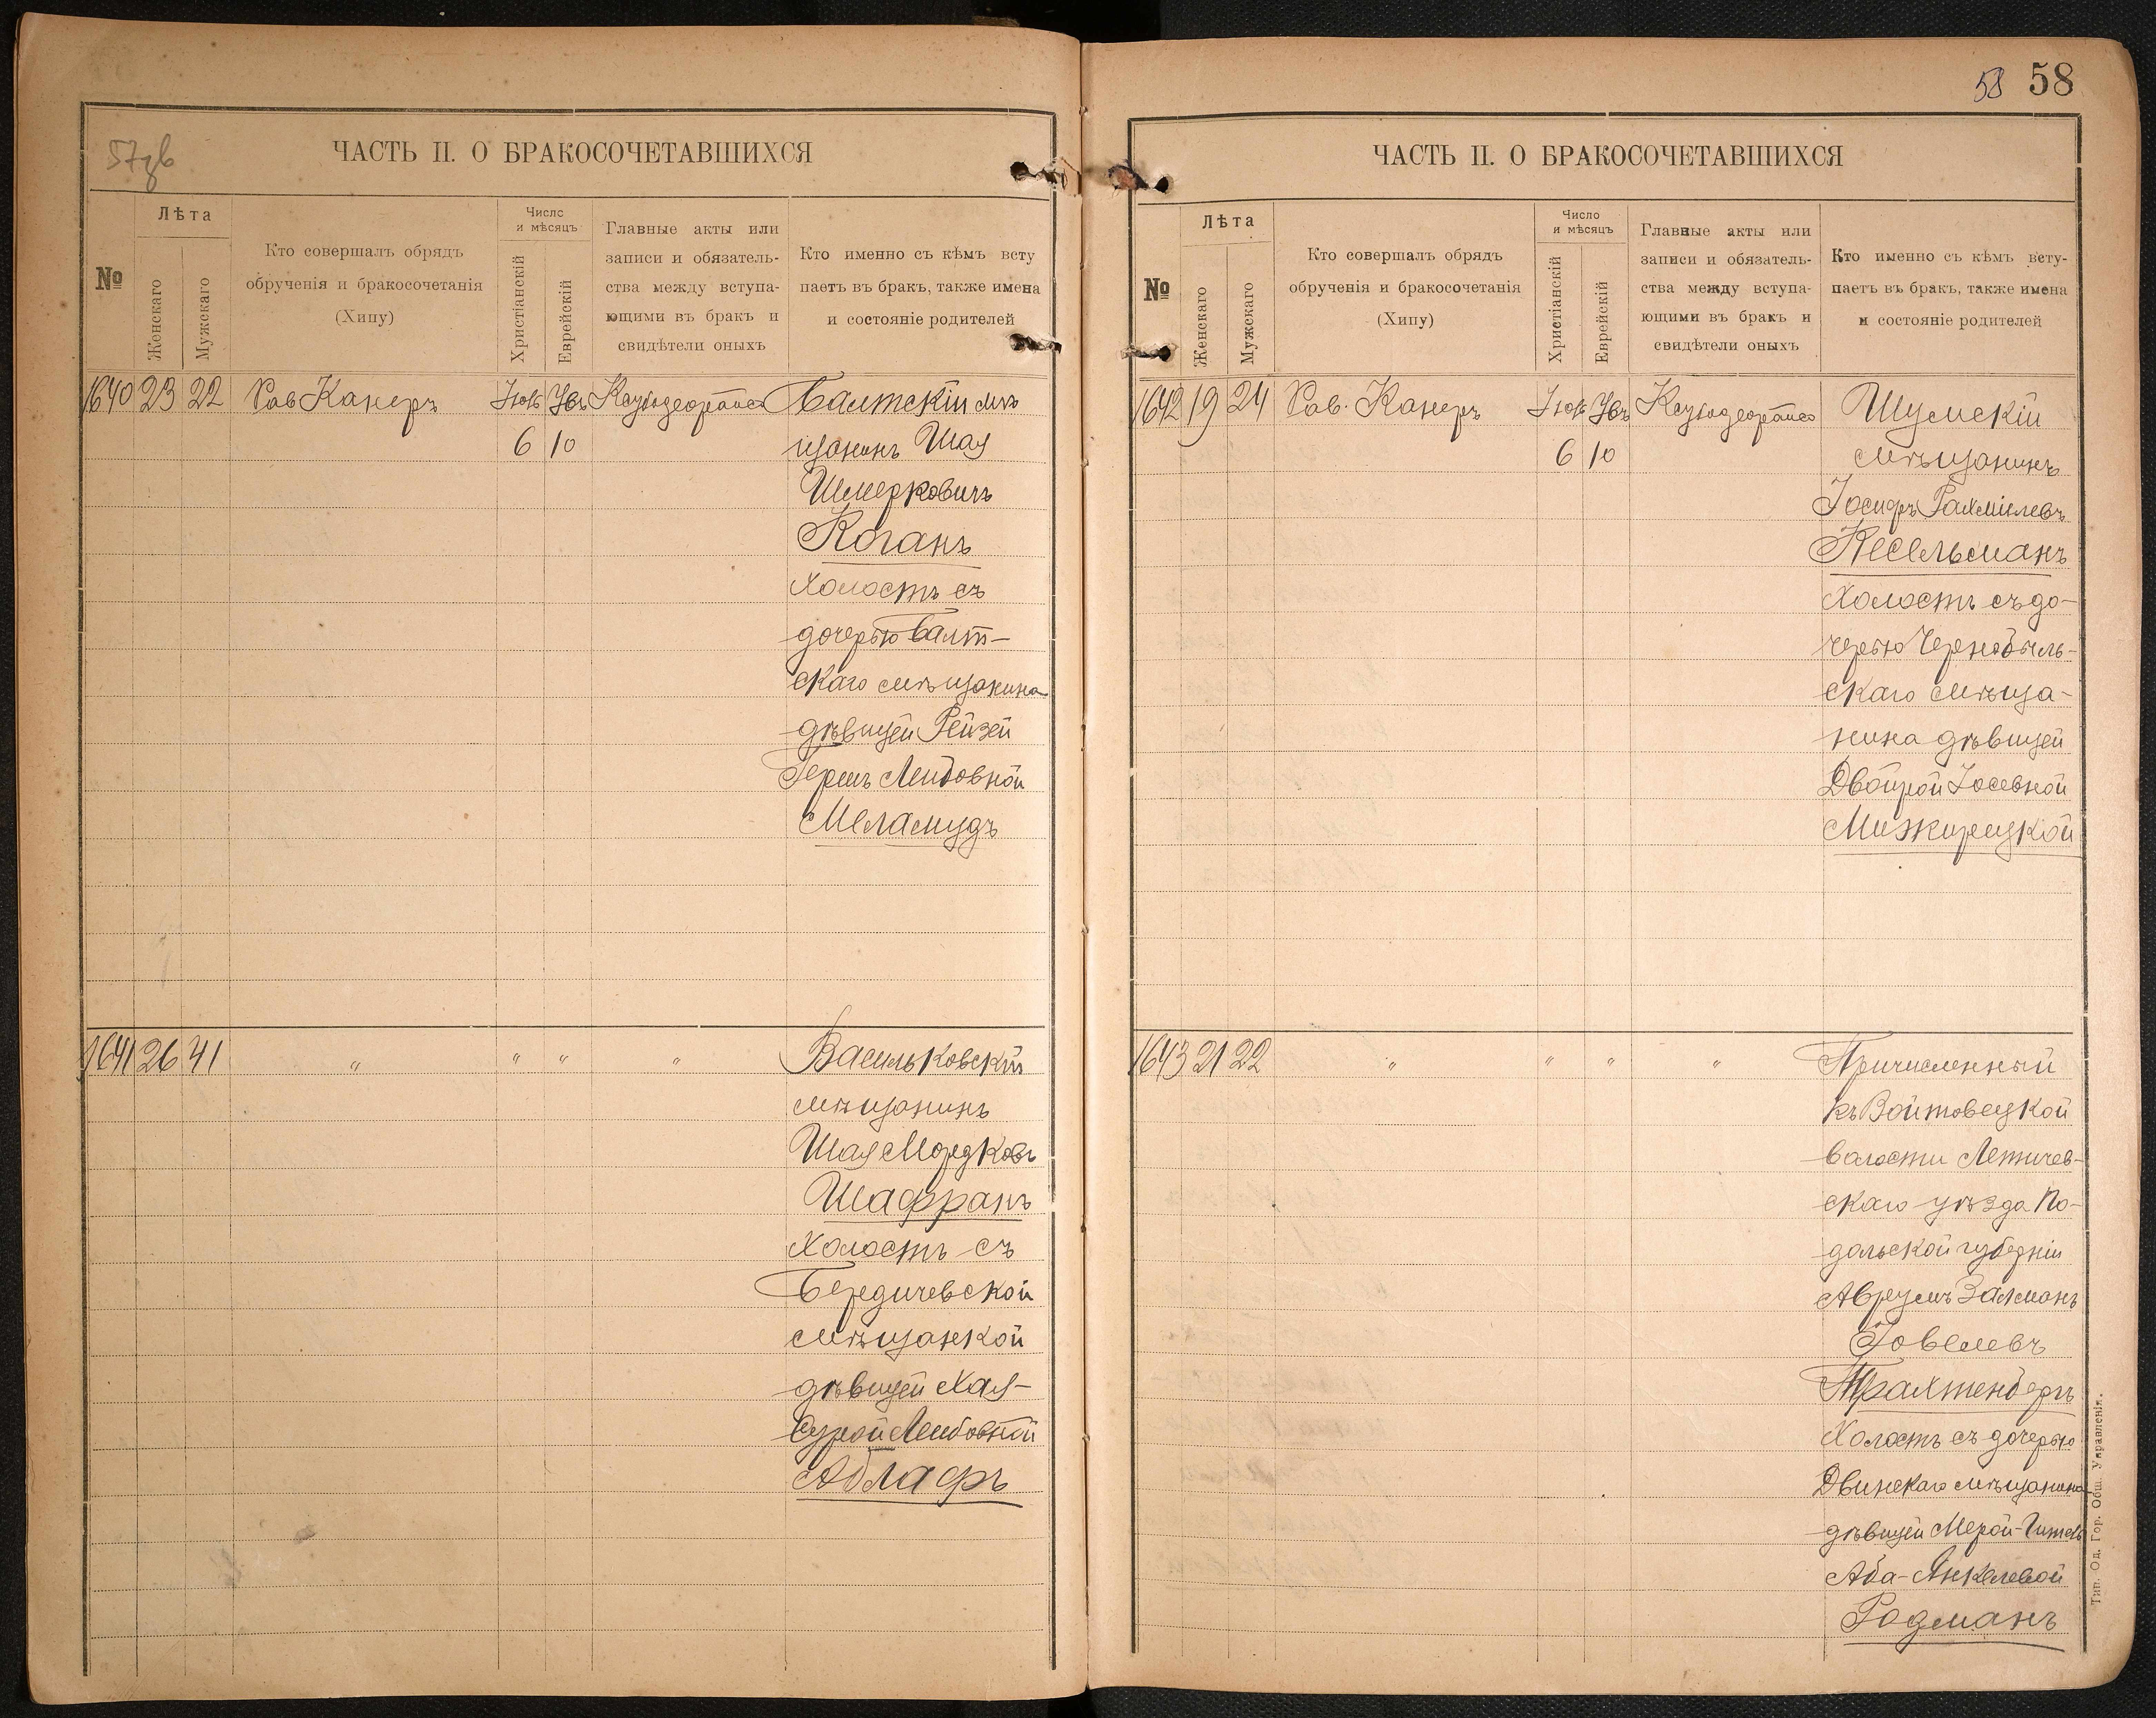 57 зв
ЧАСТЬ II. О БРАКОСОЧЕТАВШИХСЯ
№
Лѣта
Женскаго
Мужскаго
Кто совершалъ обрядъ
обрученія и бракосочетанія
(Хипу)
Число
и мѣсяцъ
Христіанскій
Еврейскій
Главные акты или
записи и обязатель-
ства между вступа-
ющими въ бракъ и
свидѣтели оныхъ
Кто именно съ кѣмъ всту
паетъ въ бракъ, также имена
и состояніе родителей
1640 23 22 Рав Канеръ
6 10
Балтскій мѣ
щанинъ Шая
Шмерковичъ
Коганъ
холостъ съ
дочерью Балт-
скаго мѣщанина
дѣвицей Рейзей
Гершъ Лейбовной
Меламудъ
1641 26 41 " " " "
Васильковскій
мѣщанинъ
Шая Мордковъ
Шафранъ
холостъ съ
Бердичевской
мѣщанкой
дѣвицей Хая-
Сурой Лейбовной
Аблафъ
58 58
ЧАСТЬ II. О БРАКОСОЧЕТАВШИХСЯ
№
Лѣта
Женскаго
Мужскаго
Кто совершалъ обрядъ
обрученія и бракосочетанія
(Хипу)
Число
и мѣсяцъ
Христіанскій
Еврейскій
Главные акты или
записи и обязатель-
ства между вступа-
ющими въ бракъ и
свидѣтели оныхъ
Кто именно съ кѣмъ всту-
паетъ въ бракъ, также имена
и состояніе родителей
1642 19 24 Рав. Канеръ
6 10
Шумскій
мѣщанинъ
Іосифъ Рахмилевъ
Кесельманъ
холостъ съ до-
черью Чернобыль-
скаго мѣща-
нина дѣвицей
Двойрой Іосевной
Мижирицкой
1643 21 22 " " " "
Причисленный
къ Войтовецкой
волости Летичев-
скаго уѣзда По-
дольской губерніи
Аврумъ Залманъ
Говелевъ
Трахтенберъ
холостъ съ дочерью
Двинскаго мѣщанина
дѣвицей Мерой-Гитель
Аба-Янкелевой
Родманъ
Тип. Од. Гор. Общ. Управленія.